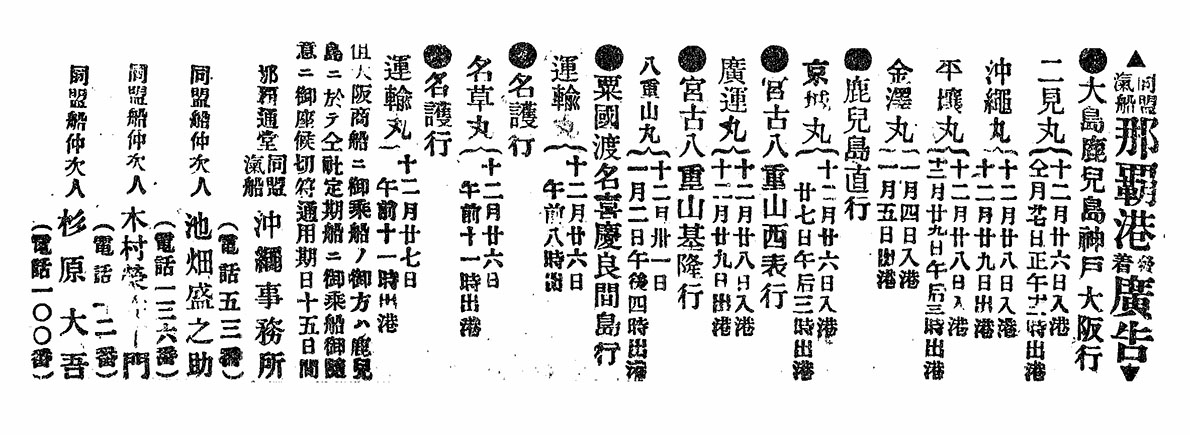 ▲同盟汽船那覇港發着廣告▼
●大島鹿兒島神戸大阪行
二見丸
十二月廿六日入港
仝月廿七日正午十二時出港
沖繩丸
十二月廿八日入港
十二月廿九日出港
平壤丸
十二月廿八日入港
十二月廿九日午后三時出港
金澤丸
一月四日入港
一月五日出港
●鹿兒島直行
京城丸
十二月廿六日入港
廿七日午后三時出港
●宮古八重山西表行
廣運丸
十二月廿八日入港
十二月廿九日出港
●宮古八重山基隆行
八重山丸
十二月卅一日
一月二日午後四時出港
●粟國渡名喜慶良間島行
運輸丸
十二月廿六日
午前八時出
●名護行
名草丸
十二月廿六日
午前十一時出港
●名護行
運輸丸
十二月廿七日
午前十一時出港
但大阪商船ニ御乘船ノ御方ハ鹿兒
島ニ於テ仝社定期船ニ御乘船御隨
意ニ御座候切符通用期日十五日間
那覇通堂
同盟汽船
沖繩事務所
(電話五三番)
同盟船仲次人 池畑盛之助
(電話一三六番)
同盟船仲次人 木村榮 門
(電話一二番)
同盟船仲次人 杉原大吾
(電話一〇〇番)